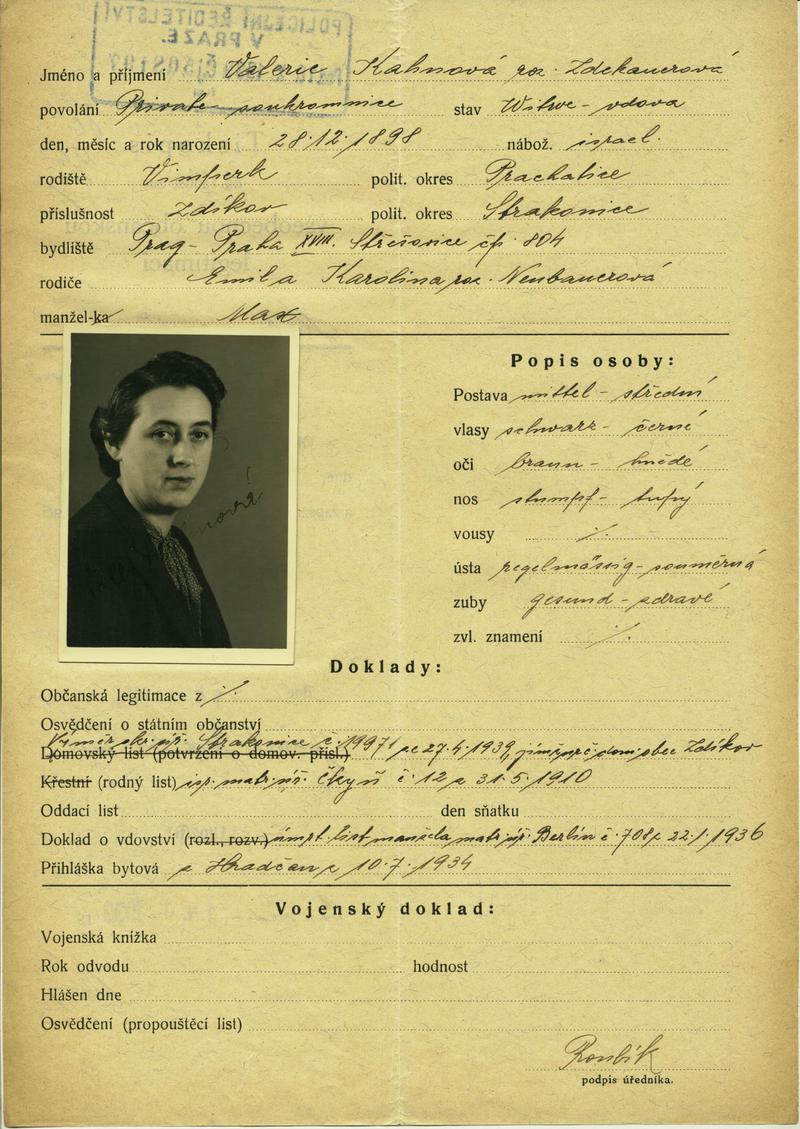 POLICEJNÍ ŘEDITELSTVÍ
V PRAZE.
Jméno a příjmení Valerie Kahnová roz. Zdekauerová
povolání Private - soukromnice stav Witwe - vdova
den, měsíc a rok narození 28.12.1898 nábož. israel.
rodiště Vimperk polit. okres Prachatice
příslušnost Zdíkov polit. okres Strakonice
bydliště Prag - Praha XVIII. Střešovice čp. 804
rodiče Emil a Karolina roz. Neubauerová
manžel-ka Max
Popis osoby:
Postava mittel - střední
vlasy schwarz - černé
oči braun - hnědé
nos stumpf - tupý
vousy ./.
ústa regelmässig - souměrná
zuby gesund - zdravé
zvl. znamení ./.
Doklady:
Občanská legitimace z ./.
Osvědčení o státním občanství
Výměr okr. úř. Strakonice č. 19971 ze 27.4.1939, obec Zdíkov
Domovský list (potvrzení o domov. přísl.)
Křestní (rodný list) isr. matr. úř. Čkyň č. 12 z 31.5.1910
Oddací list den sňatku
Doklad o vdovství (rozl., rozv.) úmrt. list manžela matr. úř. Berlín č. 708 z 22.1.1936
Přihláška bytová z Hradčan z 10.7.1934
Vojenský doklad:
Vojenská knížka
Rok odvodu hodnost
Hlášen dne
Osvědčení (propouštěcí list)
Roubík
podpis úředníka.